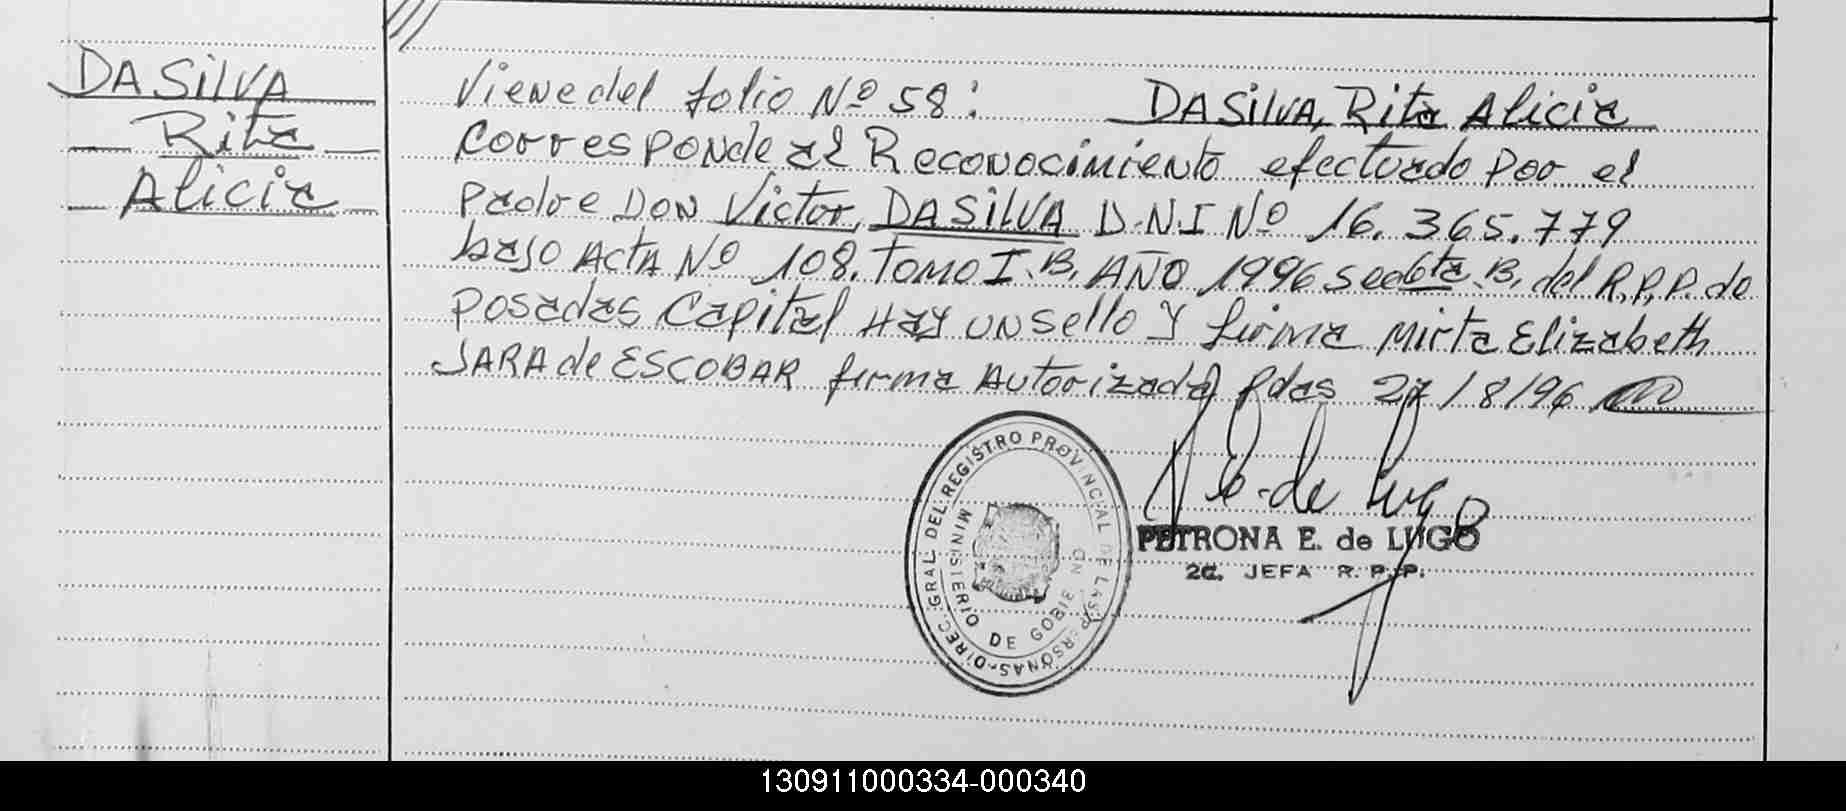 DA SilVA
Rita
Alicia
Viene del folio Nº 58: DA SilVA, Rita Alicia
Corresponde al Reconocimiento efectuado por el
padre DON Victor, DA SilVA D.N.I Nº 16.365.779
bajo Acta Nº 108. TOMO I.B. AÑO 1996 Secc 6ta B. del R.P.P. de
Posadas Capital Hay un sello y firma Mirta Elizabeth
JARA de ESCOBAR firma Autorizada Pdas 27/8/96
DIREC. GRAL. DEL REGISTRO PROVINCIAL DE LAS PERSONAS
MINISTERIO DE GOBIERNO
E. de Lugo
PETRONA E. de LUGO
2a. JEFA R. P. P.
130911000334-000340